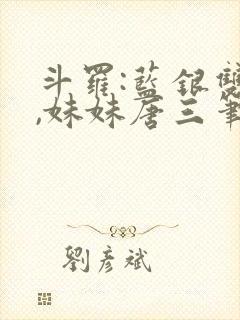 斗羅:藍銀雙
,妹妹唐三筆
劉彥斌